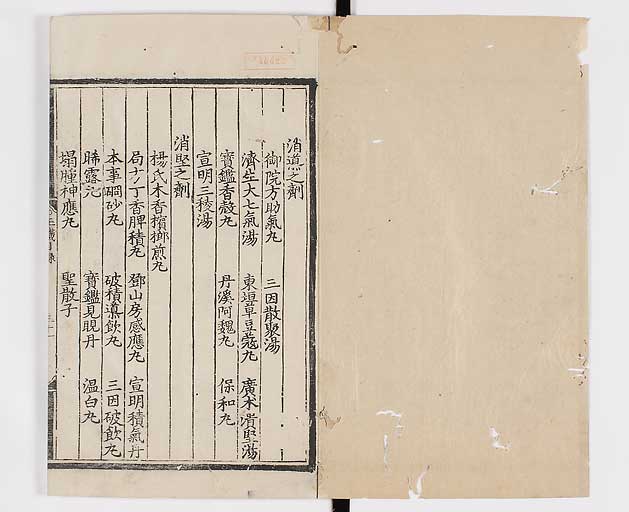 消導之劑
御院方助氣丸 三因散聚湯
濟生大七氣湯 東垣草豆蔲丸 廣朮潰堅湯
寶鑑香殼丸 丹溪阿魏丸 保和丸
宣明三稜湯
消堅之劑
楊氏木香檳榔煎丸
局方丁香脾積丸 鄧山房感應丸 宣明積氣丹
本事硇砂丸 破積導飲丸 三因破飲丸
晞露丸 寶鑑見晛丹 温白丸
塌腫神應丸 聖散子